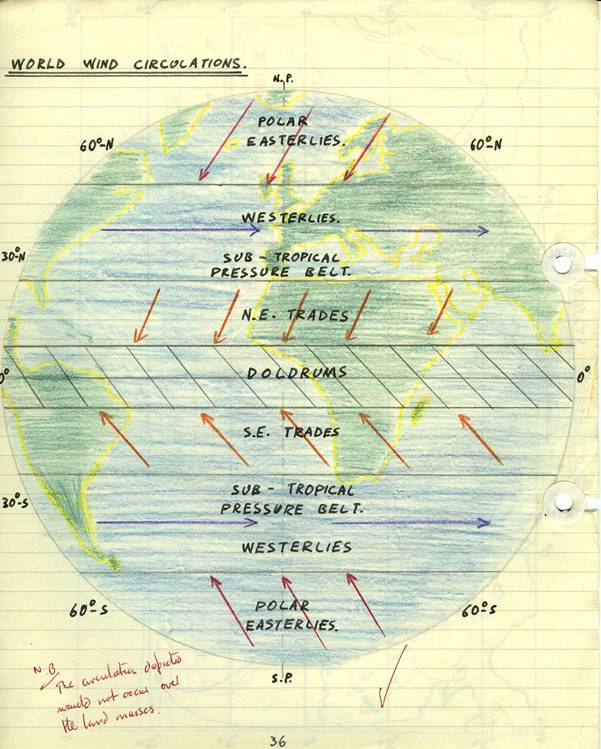 WORLD WIND CIRCULATIONS.
N.P.
POLAR
EASTERLIES.
60°N
60°N
WESTERLIES.
30°N
SUB-TROPICAL
PRESSURE BELT.
N.E. TRADES
0°
DOLDRUMS
0°
S.E. TRADES
SUB-TROPICAL
PRESSURE BELT.
30°S
WESTERLIES
60°S
60°S
POLAR
EASTERLIES.
S.P.
N.B.
The circulation depicted
would not occur over
the land masses.
36